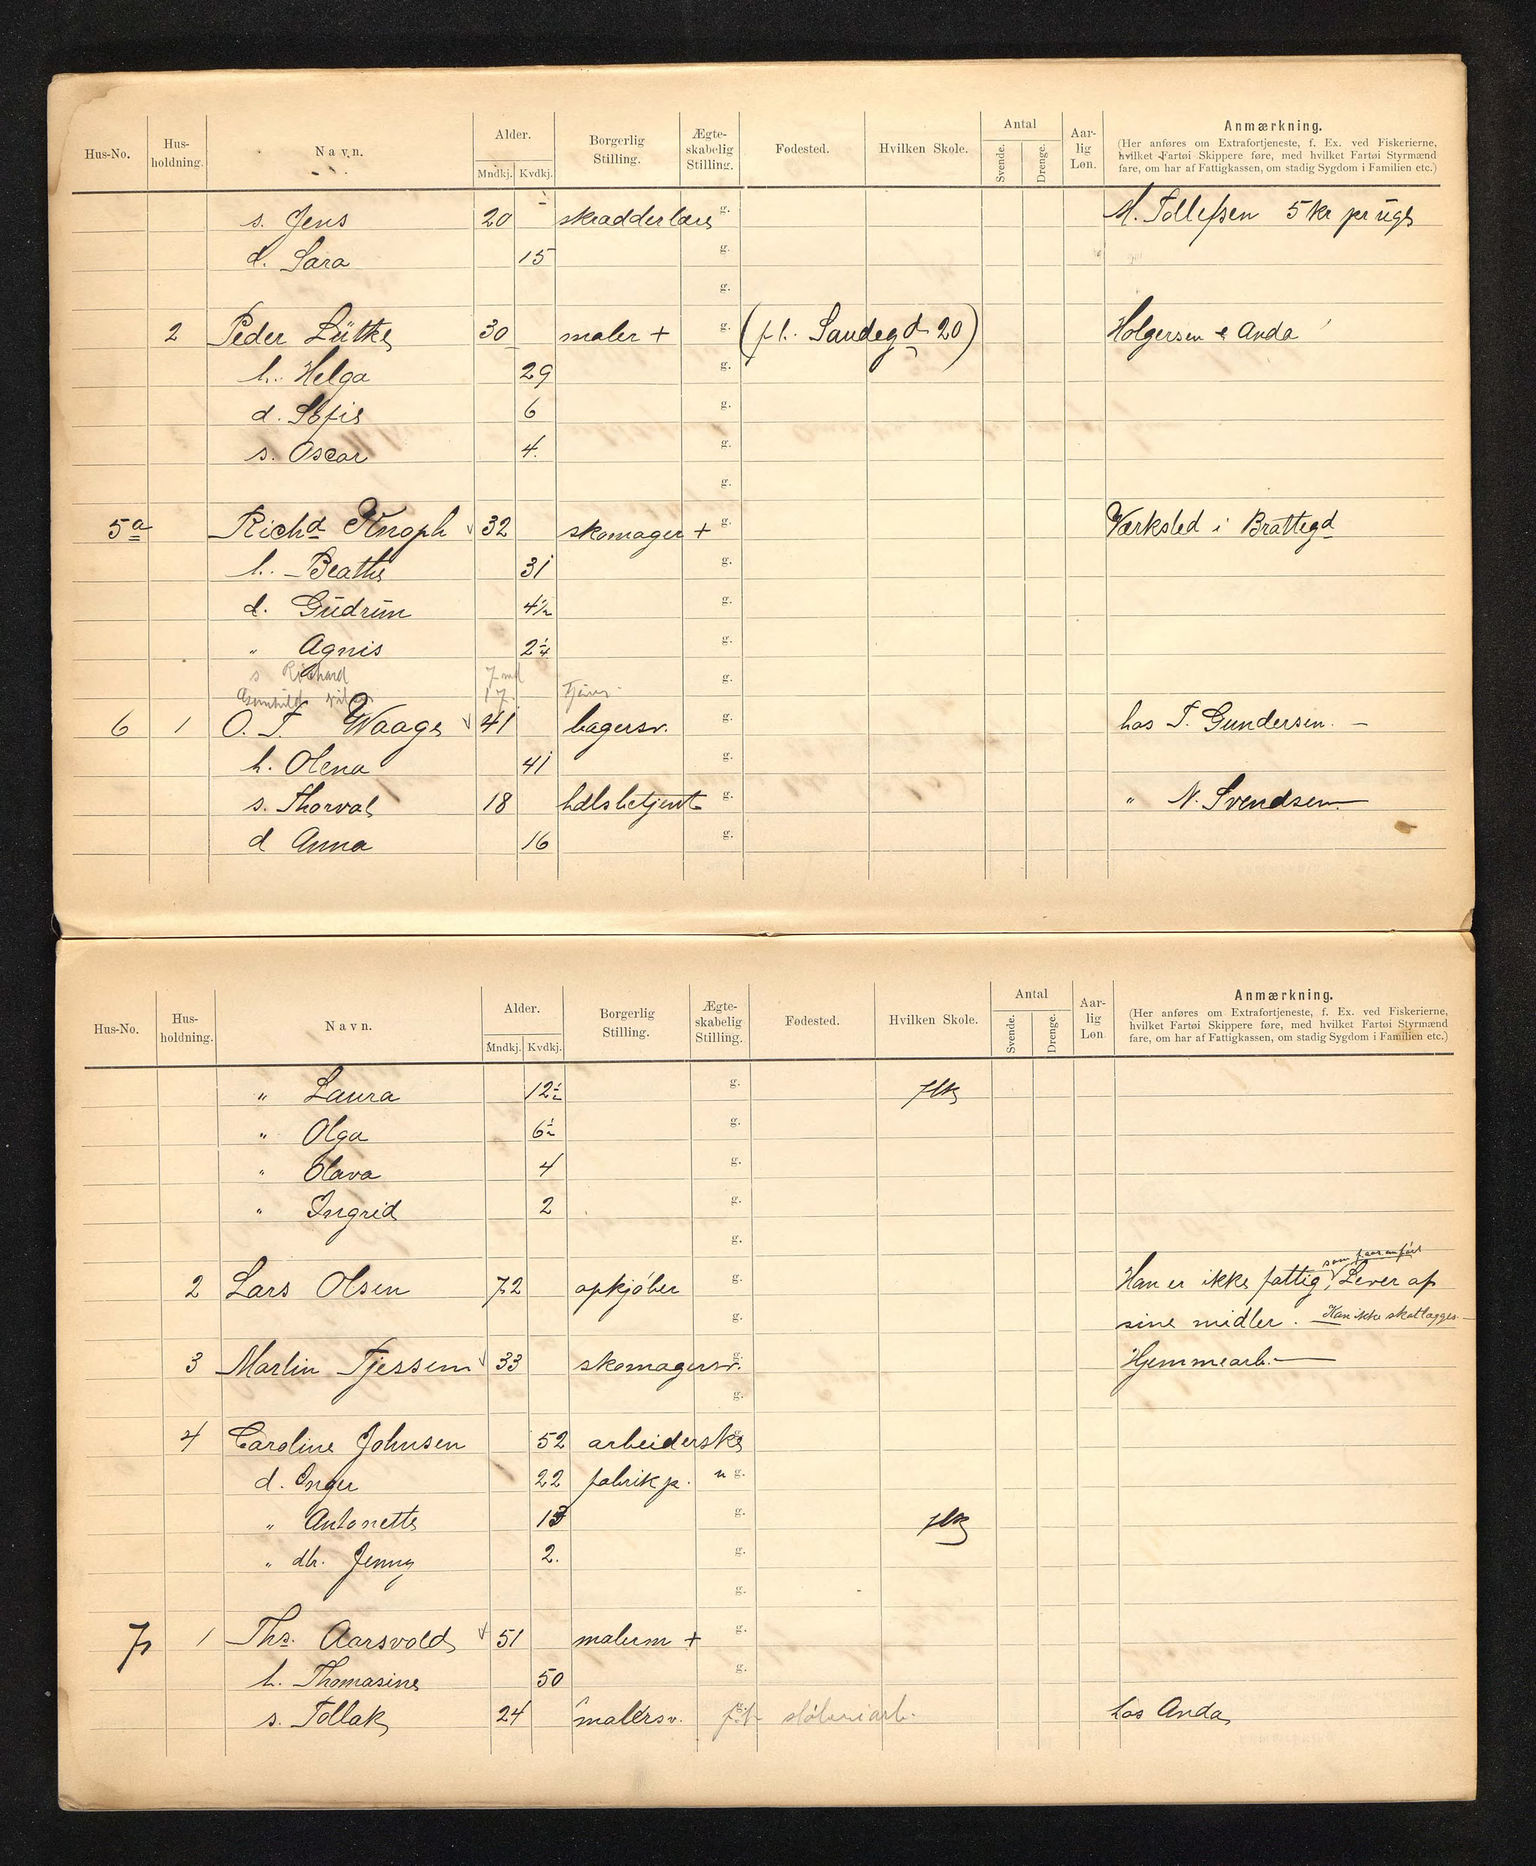 Hus-No. Hus-holdning. Navn. Alder. Mndkj. Kvdkj. Borgerlig Stilling. Ægte-skabelig Stilling. Fødested. Hvilken Skole. Antal Svende. Drenge. Aar-lig Løn. Anmærkning.
(Her anføres om Extrafortjeneste, f. Ex. ved Fiskerierne,
hvilket Fartøi Skippere føre, med hvilket Fartøi Styrmænd
fare, om har af Fattigkassen, om stadig Sygdom i Familien etc.)
s. Jens 20 skrædderlære g. M. Tollefsen 5 kr pr uge
d. Sara 15 g.
g.
2 Peder Lütke 30 maler + g. (fl. Sandegd 20) Holgersen & Anda
h. Helga 29 g.
d. Sofie 6 g.
s. Oscar 4. g.
g.
5a Richd Knoph 32 skomager + g. Værksted i Brattegd
h. Beathe 31 g.
d. Gudrun 4½ g.
" Agnis 2¼ g.
s Richard 7 md g.
17. Tjener
6 1 O. T. Waage 41 bagersv. g. hos T. Gundersen. –
h. Olena 41 g.
s. Thorval 18 hdlsbetjent g. " N. Svendsen
d Anna 16 g.
Hus-No. Hus-holdning. Navn. Alder. Mndkj. Kvdkj. Borgerlig Stilling. Ægte-skabelig Stilling. Fødested. Hvilken Skole. Antal Svende. Drenge. Aar-lig Løn. Anmærkning.
(Her anføres om Extrafortjeneste, f. Ex. ved Fiskerierne,
hvilket Fartøi Skippere føre, med hvilket Fartøi Styrmænd
fare, om har af Fattigkassen, om stadig Sygdom i Familien etc.)
" Laura 12½ g. flk
" Olga 6½ g.
" Olava 4 g.
" Ingrid 2 g.
g.
som foran anført
2 Lars Olsen 72 opkjøber g. Han er ikke fattig, Lever af
g. sine midler. Kan ikke skatlægges. –
3 Martin Tjessem 33 skomagersv. g. Hjemmearb. –
g.
4 Caroline Johnsen 52 arbeiderske g.
d. Inger 22 fabrikp. u g.
" Antonette 13 g. flk
" dtr. Jenny 2. g.
g.
7 1 Ths. Aarsvold 51 malerm + g.
h. Thomasine 50 g.
s. Tollak 24 malersv. g. støberiarb. hos Anda